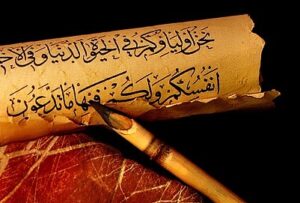 نَحْنُ أَوْلِيَاؤُكُمْ فِي الْحَيَوةِ الدُّنْيَا وَفِي
أَنْفُسُكُمْ وَلَكُمْ فِيهَا مَا تَدَّعُونَ